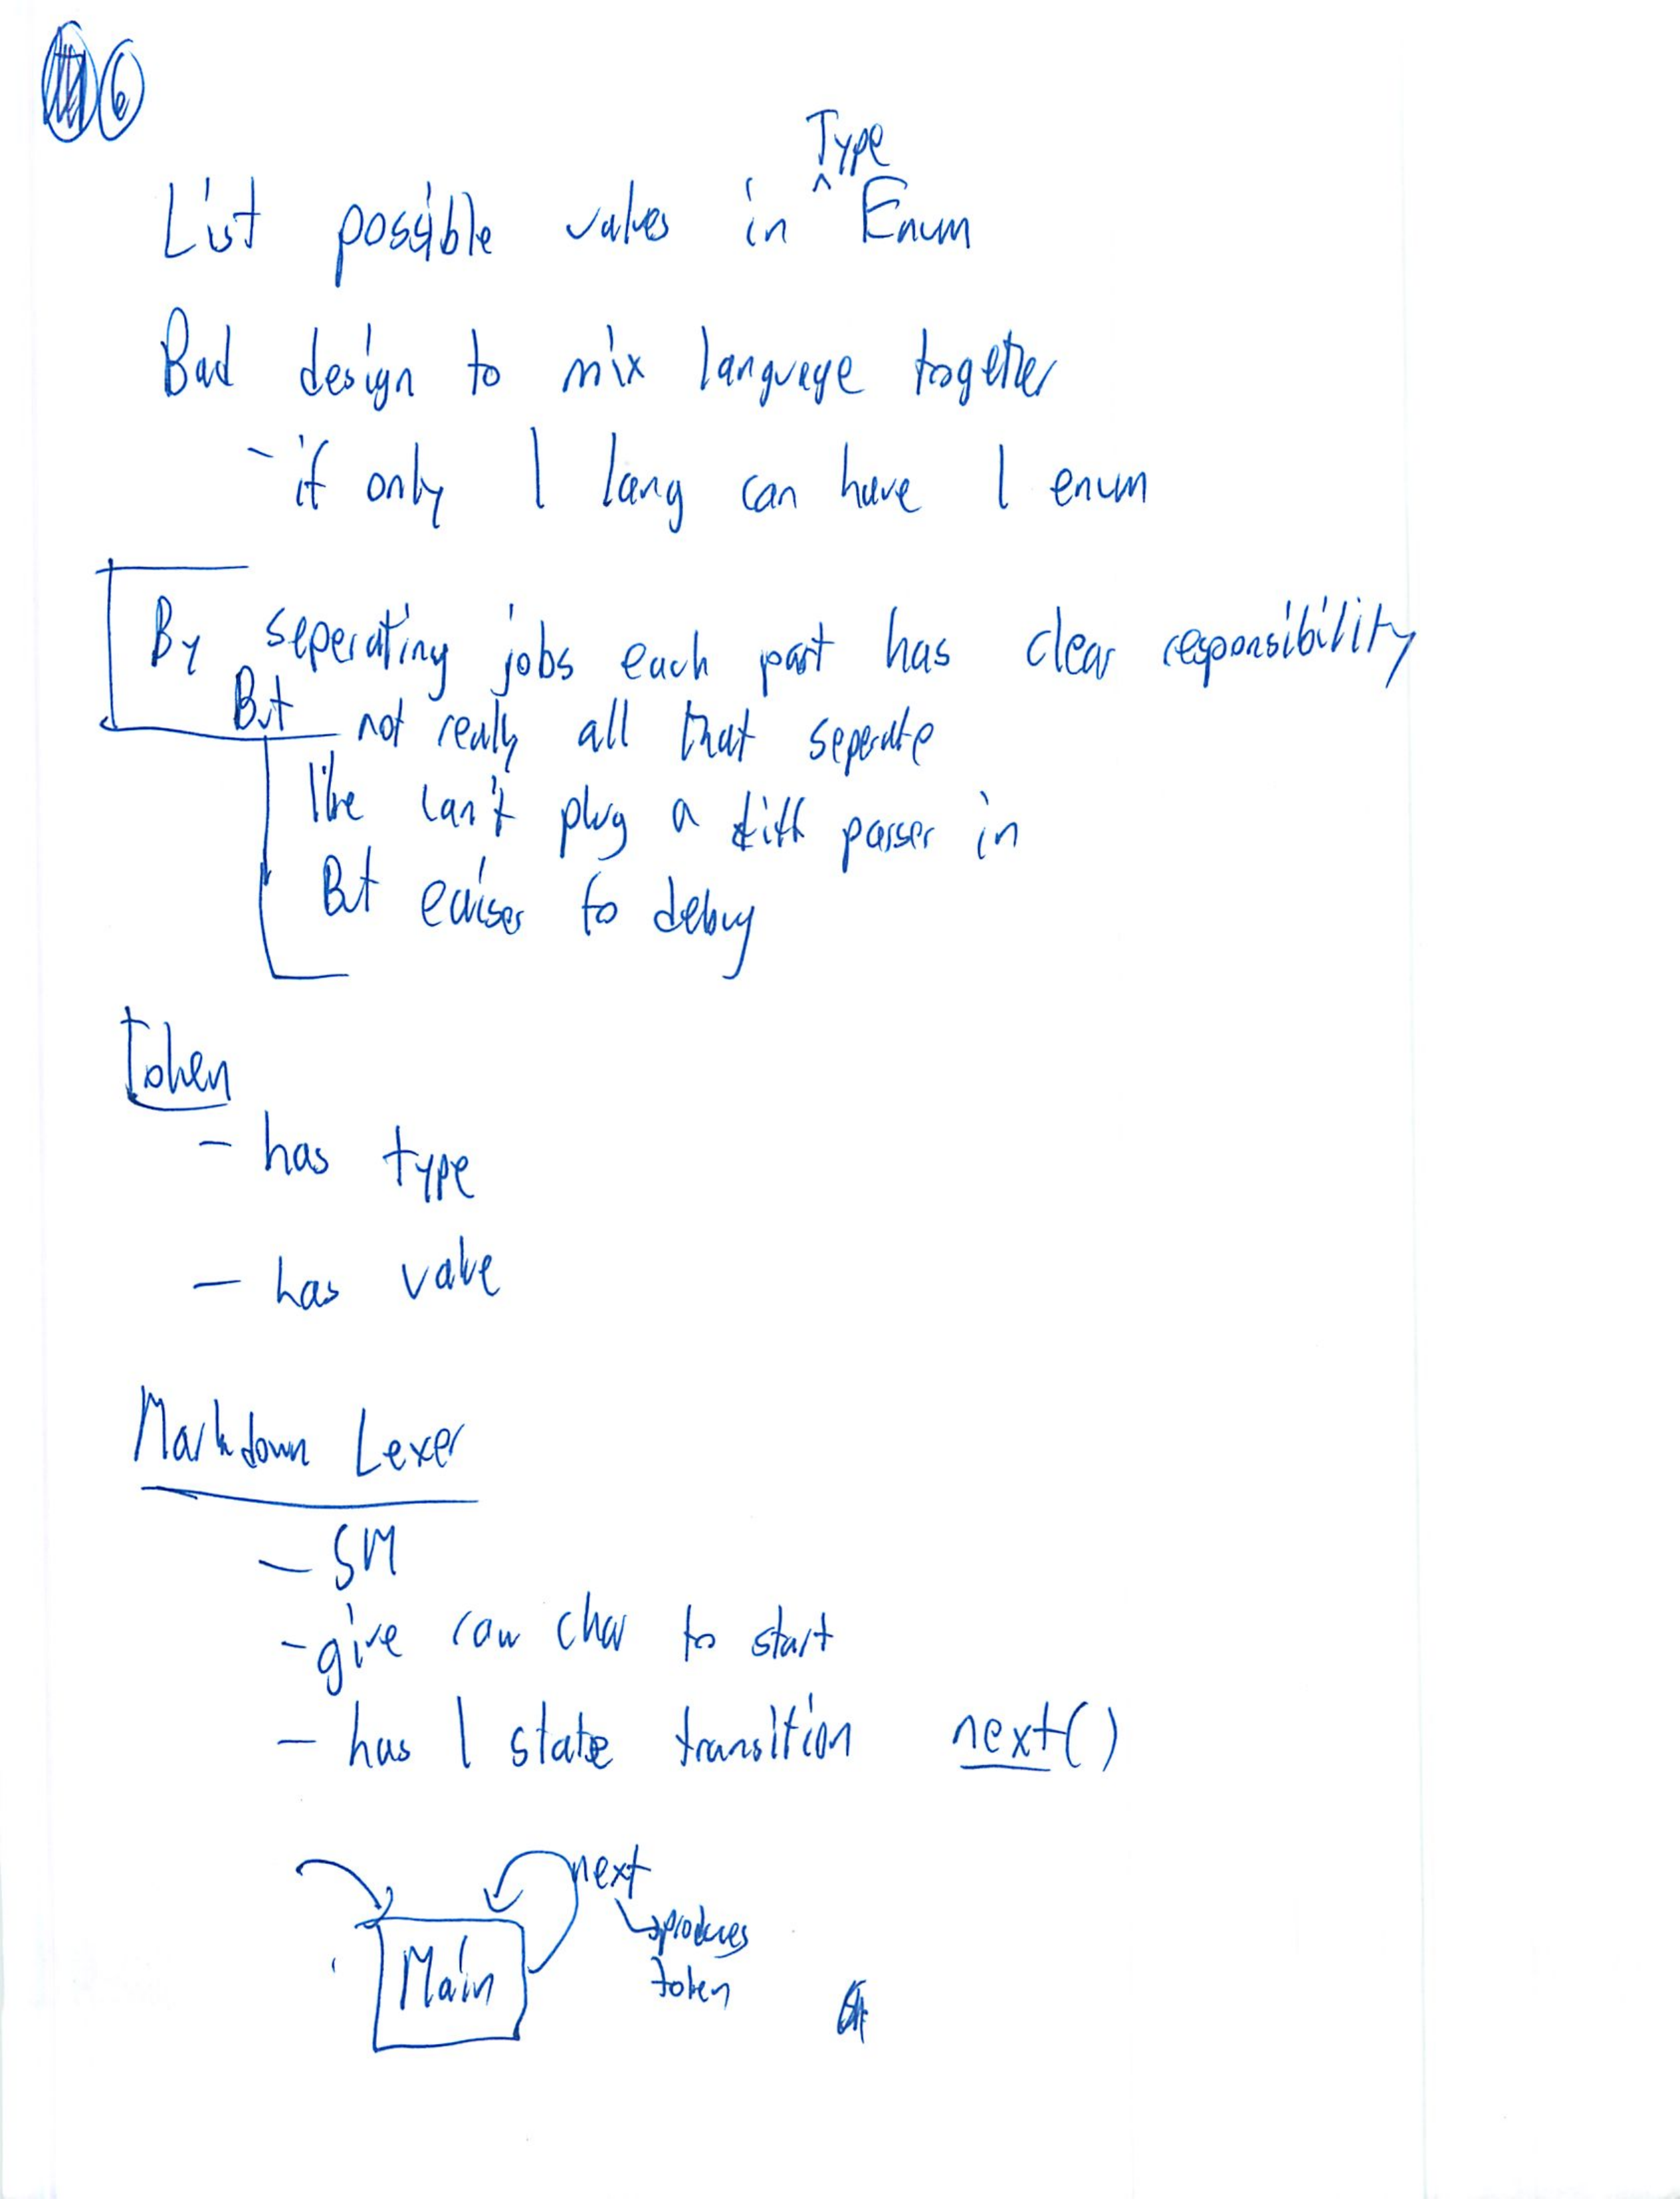 6
List possible values in Type Enum
Bad design to mix language together
- if only 1 lang can have 1 enum
By seperating jobs each part has clear responsibility
But not really all that seperate
like can't plug a diff parser in
But eaiser to debug
Token
- has type
- has value
Markdown Lexer
- SM
- give raw char to start
- has 1 state transition next()
next
↳ produces
token
Main